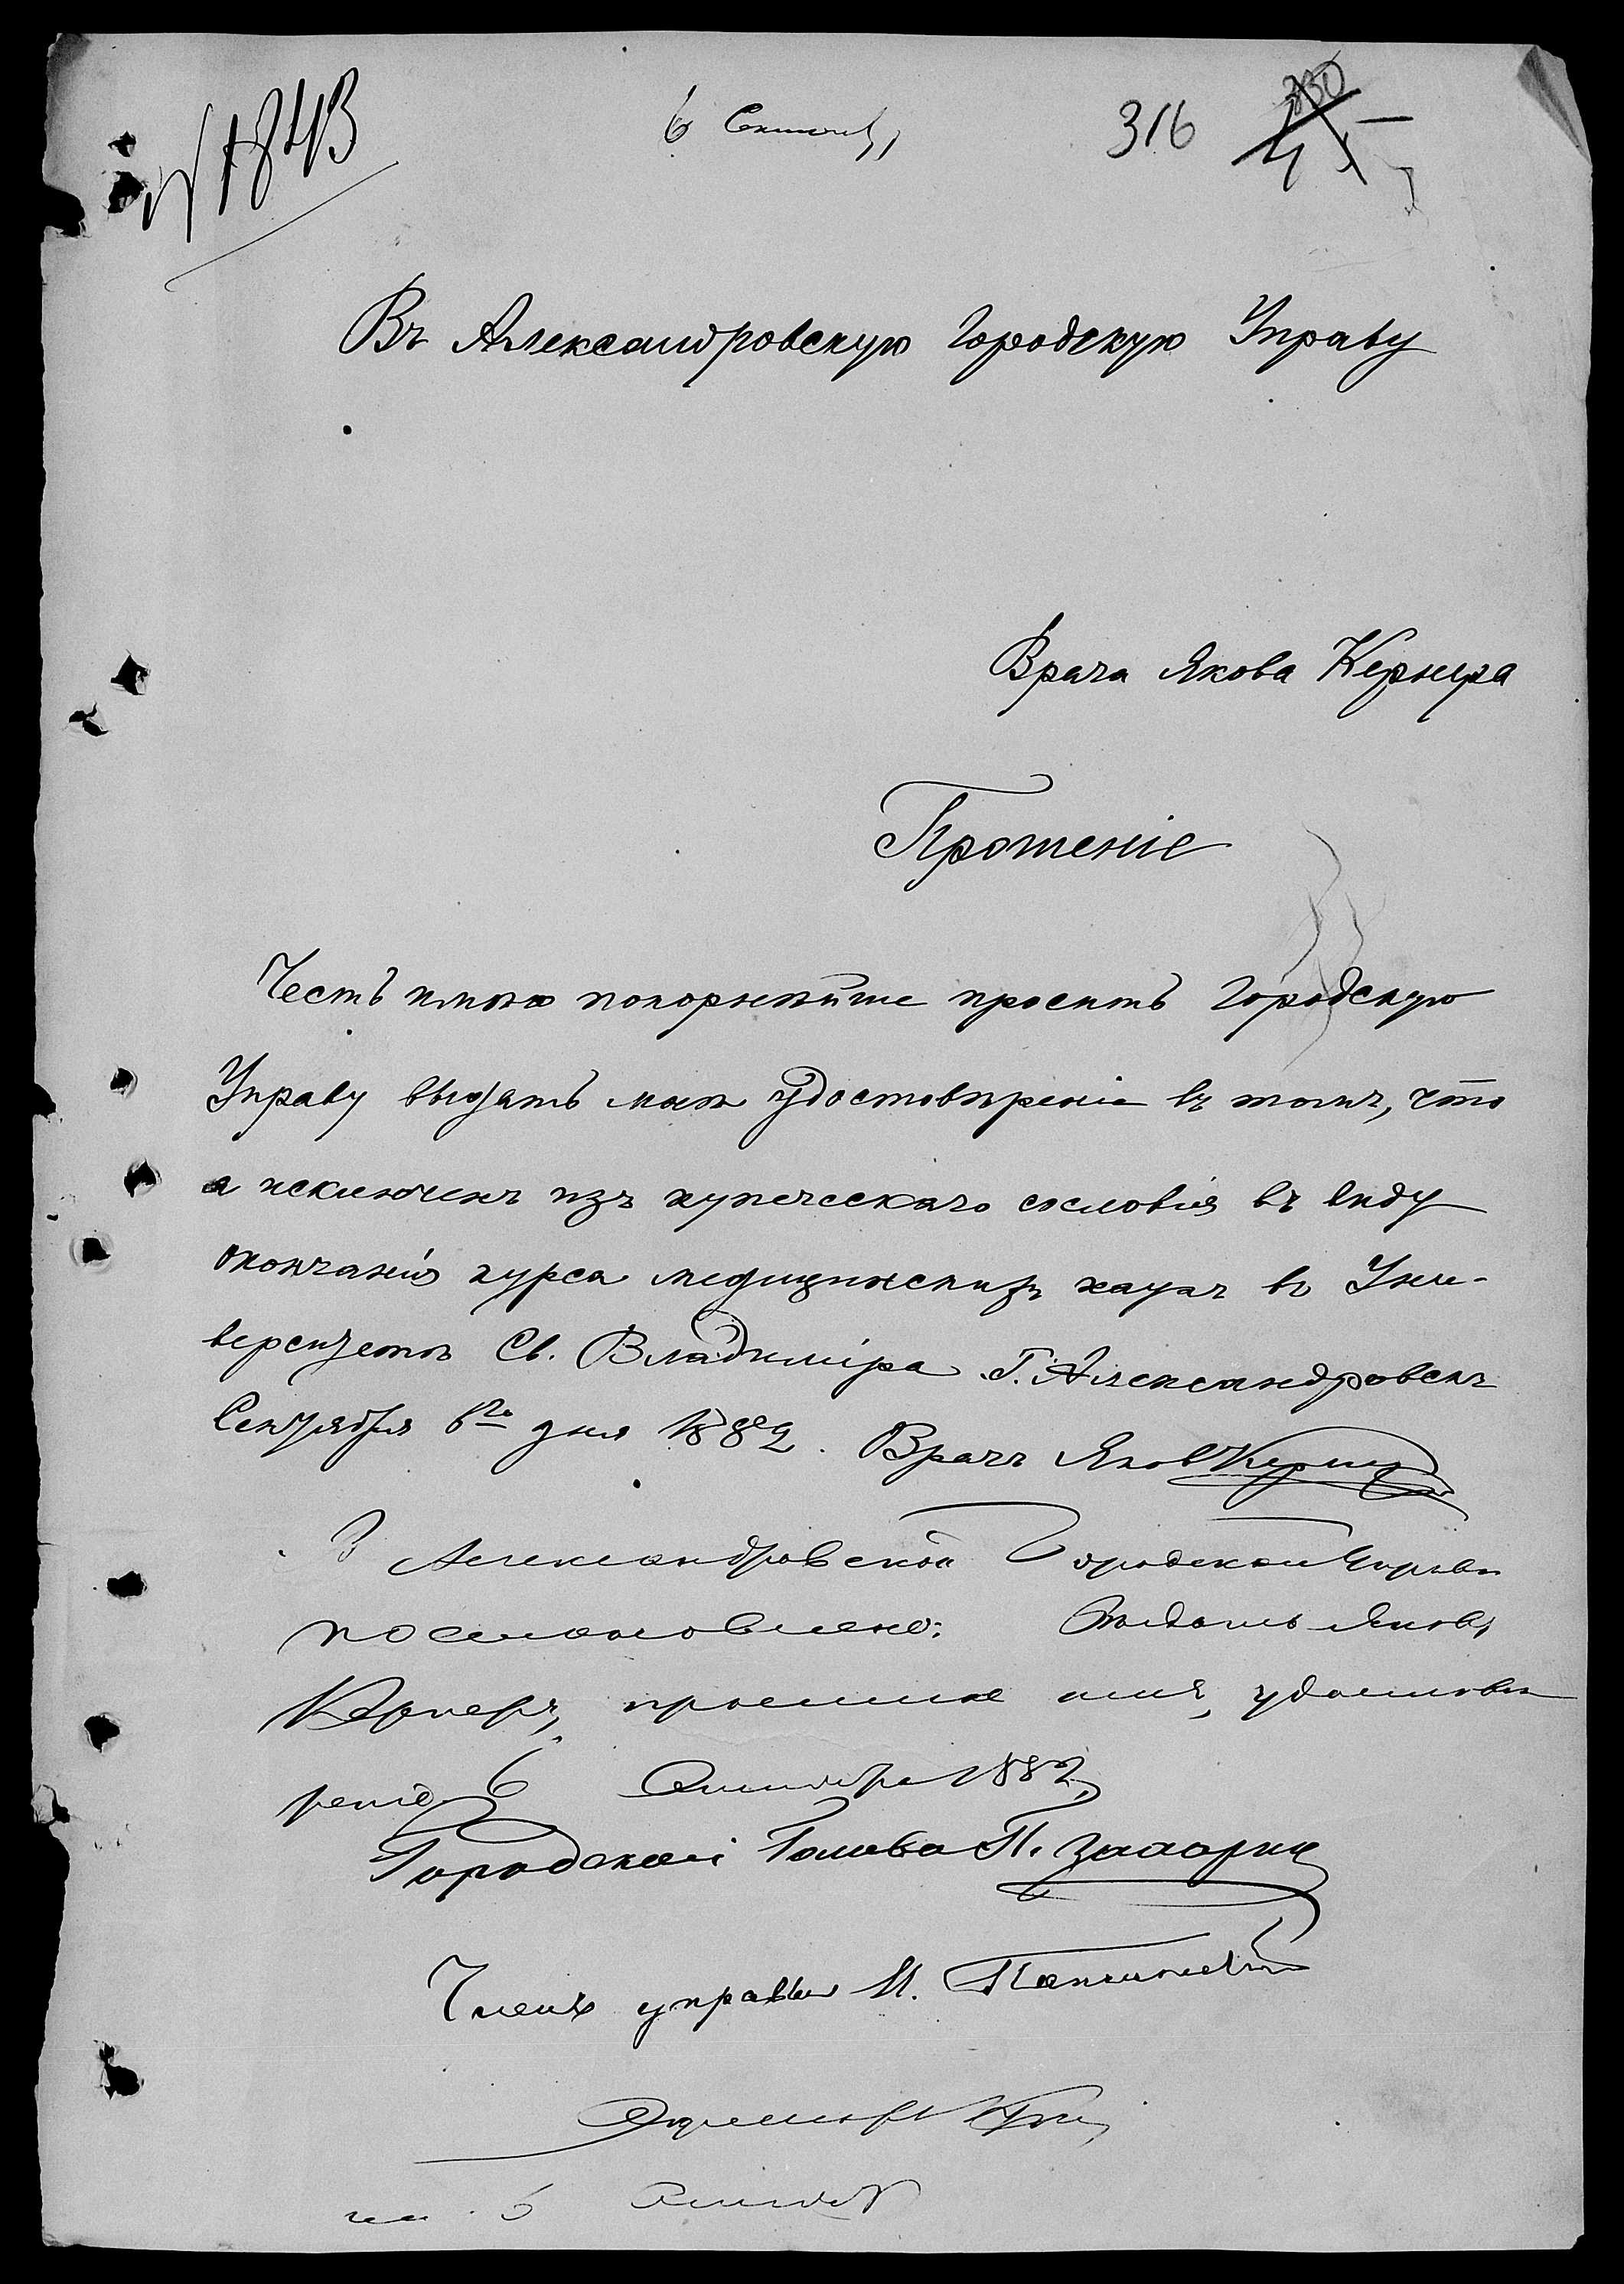 № 1843
6 Сентября
316
330
45
Въ Александровскую Городскую Управу
Врача Якова Кернера
Прошеніе
Честь имѣю покорнѣйше просить Городскую
Управу выдать мнѣ удостовѣреніе въ томъ, что
я исключенъ изъ купеческаго сословія въ виду
окончанія курса медицинскихъ наукъ въ Уни-
верситетѣ Св. Владиміра. Г. Александровскъ
Сентября 6го дня 1882. Врачъ Яковъ Кернер
В Александровской Городской Управѣ
постановлено: Выдать Якову
Кернеру просимое имъ удостовѣ
реніе 6 Сентября 1882
Городской Голова П. Захарин
Членъ управы И.
Секретарь
6 Сентября